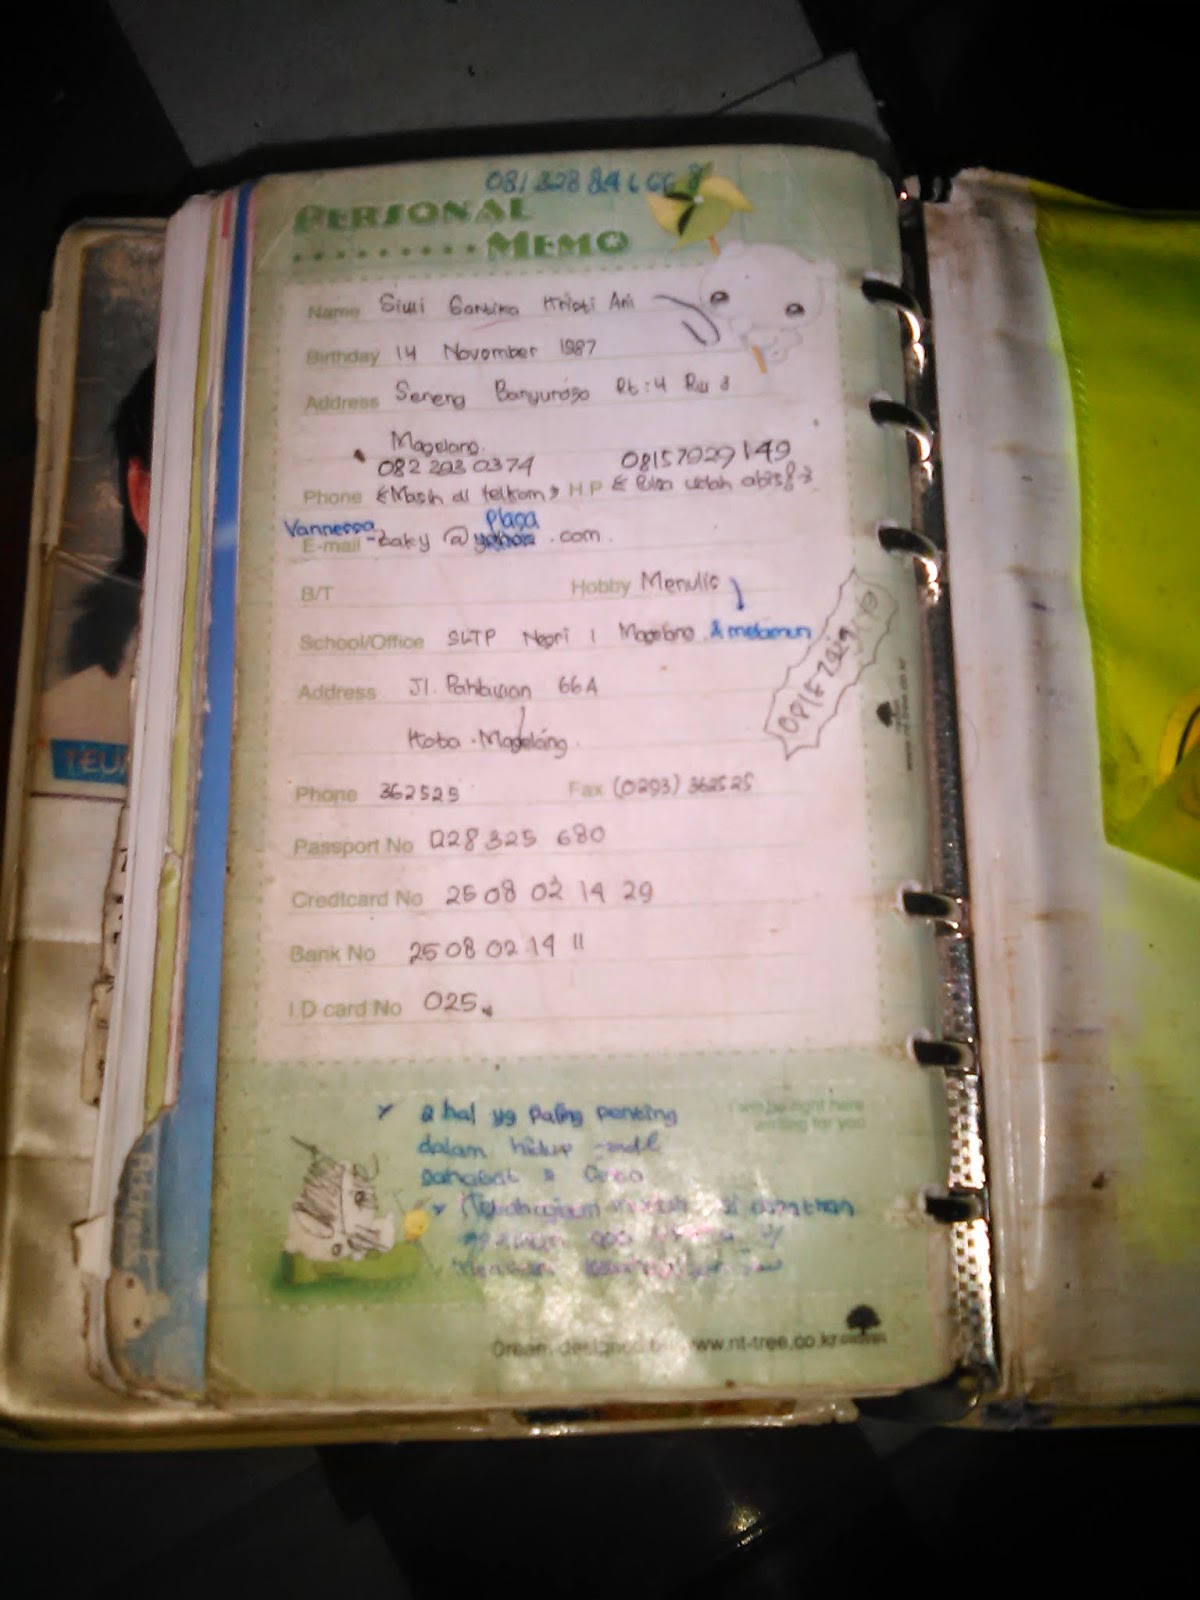 081 328 846 668
PERSONAL
MEMO
Name Siwi Santika Kristi Ani
Birthday 14 November 1987
Address Seneng Banyurojo Rt : 4 Rw 3
Magelang.
082 293 0374 08157929149
Phone < Masih di telkom > HP < Pulsa udah abis
Vannessa plasa
E-mail -zaky @ yahoo .com.
B/T Hobby Menulis
School/Office SLTP Negri 1 Magelang & melamun
Address Jl. Pahlawan 66A
08157929149
Kota Magelang.
Phone 362525 Fax (0293) 362525
Passport No 028 325 680
Creditcard No 25 08 02 14 29
Bank No 25 08 02 14 11
I D card No 025
I will be right here
waiting for you
2 hal yg paling penting
dalam hidup
sahabat &
Dream designed by www.nt-tree.co.kr
www.nt-tree.co.kr
TEU